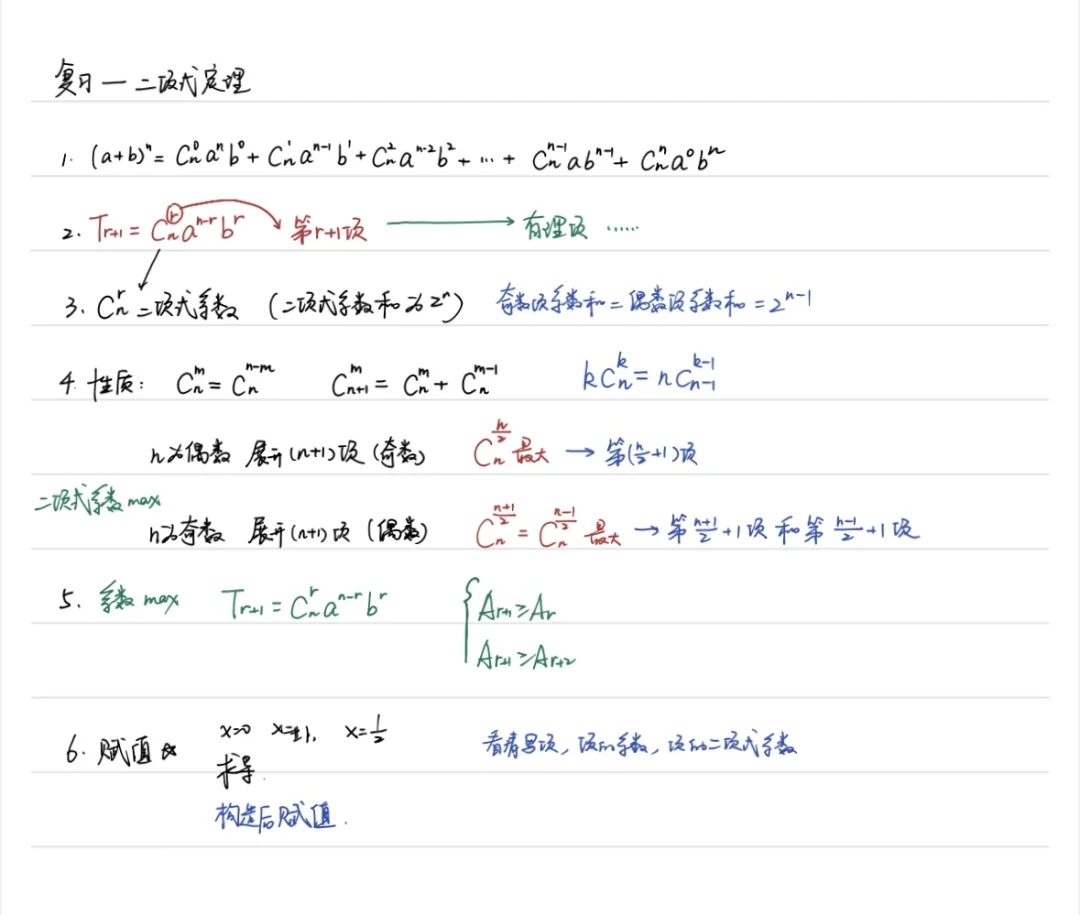 复习一二项式定理
1. (a+b)ⁿ = Cₙ⁰aⁿb⁰ + Cₙ¹aⁿ⁻¹b¹ + Cₙ²aⁿ⁻²b² + … + Cₙⁿ⁻¹abⁿ⁻¹ + Cₙⁿa⁰bⁿ
2. Tᵣ₊₁ = Cₙʳaⁿ⁻ʳbʳ 第r+1项 → 有理项 ……
3. Cₙʳ 二项式系数 (二项式系数和为2ⁿ) 奇数项系数和 = 偶数项系数和 = 2ⁿ⁻¹
4. 性质: Cₙᵐ = Cₙⁿ⁻ᵐ Cₙ₊₁ᵐ = Cₙᵐ + Cₙᵐ⁻¹ kCₙᵏ = nCₙ₋₁ᵏ⁻¹
n为偶数 展开(n+1)项 (奇数) Cₙ^(n/2) 最大 → 第(n/2+1)项
二项式系数max
n为奇数 展开(n+1)项 (偶数) Cₙ^((n+1)/2) = Cₙ^((n-1)/2) 最大 → 第(n+1)/2+1项 和第(n-1)/2+1项
5. 系数max Tᵣ₊₁ = Cₙʳaⁿ⁻ʳbʳ { Aᵣ₊₁ ≥ Aᵣ
Aᵣ₊₁ ≥ Aᵣ₊₂
6. 赋值☆ x=0 x=±1, x=1/2 看清是项, 项的系数, 项的二项式系数
求导.
构造后赋值.